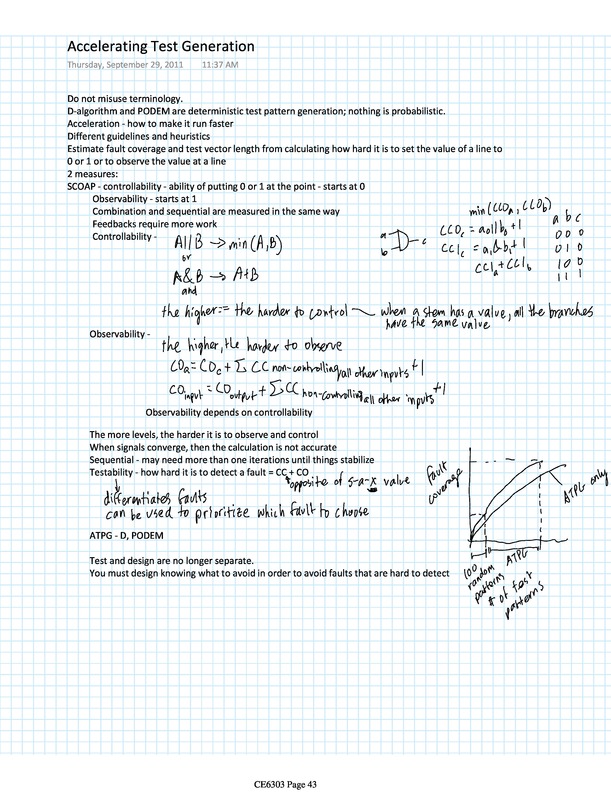 Accelerating Test Generation
Thursday, September 29, 2011 11:37 AM
Do not misuse terminology.
D-algorithm and PODEM are deterministic test pattern generation; nothing is probabilistic.
Acceleration - how to make it run faster
Different guidelines and heuristics
Estimate fault coverage and test vector length from calculating how hard it is to set the value of a line to
0 or 1 or to observe the value at a line
2 measures:
SCOAP - controllability - ability of putting 0 or 1 at the point - starts at 0
Observability - starts at 1
Combination and sequential are measured in the same way
Feedbacks require more work
Controllability -
A||B → min(A,B)
or
A&B → A+B
and
min(CC0a, CC0b)
a
b
c
CC0c = a0||b0+1
CC1c = a1&b1+1
CC1a+CC1b
a b c
0 0 0
0 1 0
1 0 0
1 1 1
the higher:= the harder to control
when a stem has a value, all the branches
have the same value
Observability -
the higher, the harder to observe
COa = COc + Σ CC non-controlling all other inputs +1
CO input = CO output + Σ CC non-controlling all other inputs +1
Observability depends on controllability
The more levels, the harder it is to observe and control
When signals converge, then the calculation is not accurate
Sequential - may need more than one iterations until things stabilize
Testability - how hard it is to detect a fault = CC + CO
opposite of s-a-x value
differentiates faults
can be used to prioritize which fault to choose
ATPG - D, PODEM
Test and design are no longer separate.
You must design knowing what to avoid in order to avoid faults that are hard to detect
fault
coverage
ATPG only
100
random
patterns
ATPG
# of test
patterns
CE6303 Page 43